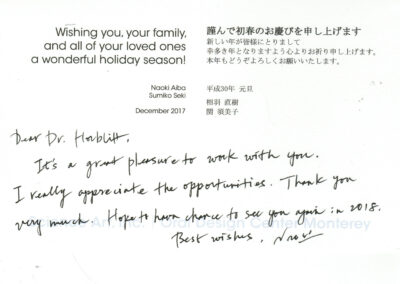 Wishing you, your family,
and all of your loved ones
a wonderful holiday season!
Naoki Aiba
Sumiko Seki
December 2017
謹んで初春のお慶びを申し上げます
新しい年が皆様にとりまして
幸多き年となりますよう心よりお祈り申し上げます。
本年もどうぞよろしくお願いいたします。
平成30年 元旦
相羽 直樹
関 須美子
Dear Dr. Horblitt,
It's a great pleasure to work with you.
I really appreciate the opportunities. Thank you
very much. Hope to have chance to see you again in 2018.
Oral Design Center Monterey
Best wishes, Naoki